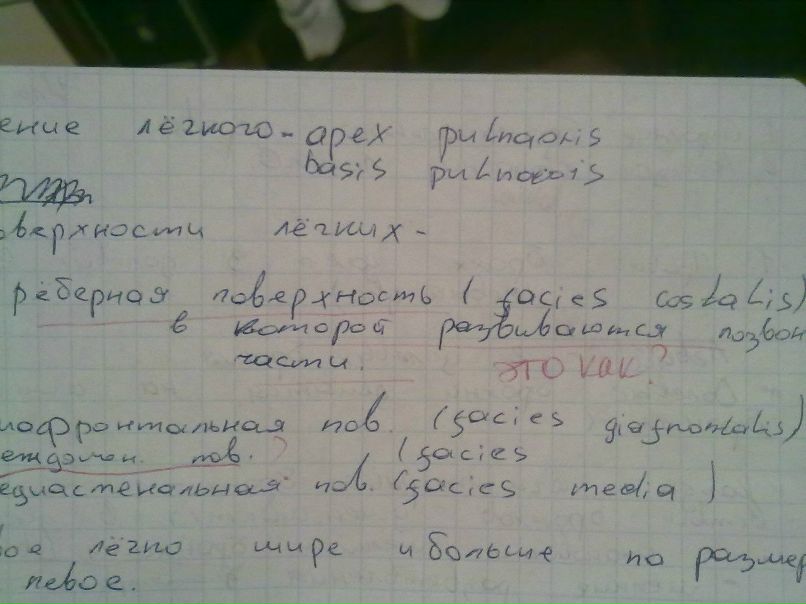 ение лёгкого - apex pulnaoris
basis pulnaois
оверхности лёгких -
рёберная поверхность (facies costalis)
в которой развиваются позвон
части. это как?
иафронтальная пов. (facies giafnontalis)
пов. ? (facies
едиастенальная пов. (facies media)
вое лёгно шире и больше по размер
левое.